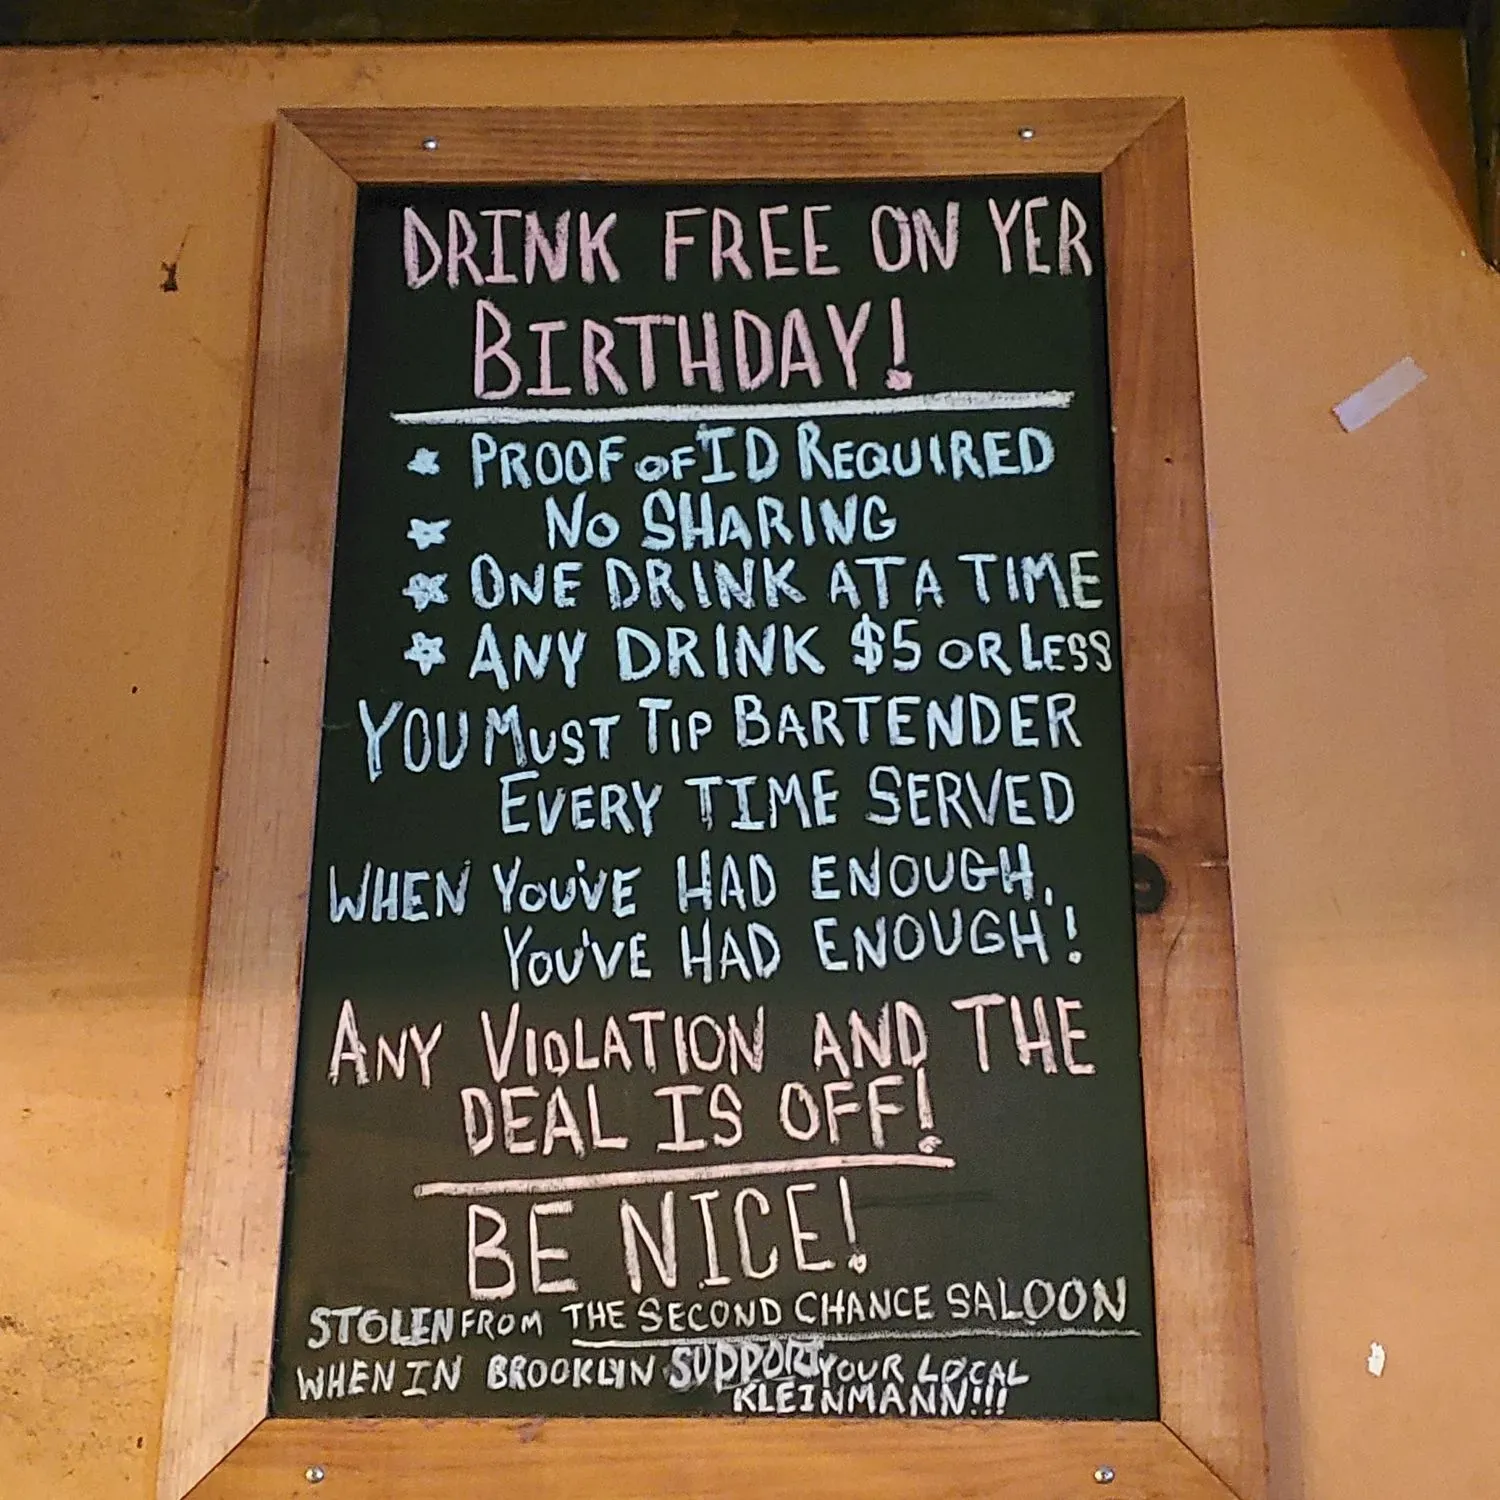 DRINK FREE ON YER
BIRTHDAY!
★ PROOF OF ID REQUIRED
★ NO SHARING
★ ONE DRINK AT A TIME
★ ANY DRINK $5 OR LESS
YOU MUST TIP BARTENDER
EVERY TIME SERVED
WHEN YOU'VE HAD ENOUGH,
YOU'VE HAD ENOUGH!
ANY VIOLATION AND THE
DEAL IS OFF!
BE NICE!
STOLEN FROM THE SECOND CHANCE SALOON
WHEN IN BROOKLYN SUPPORT YOUR LOCAL
KLEINMANN!!!